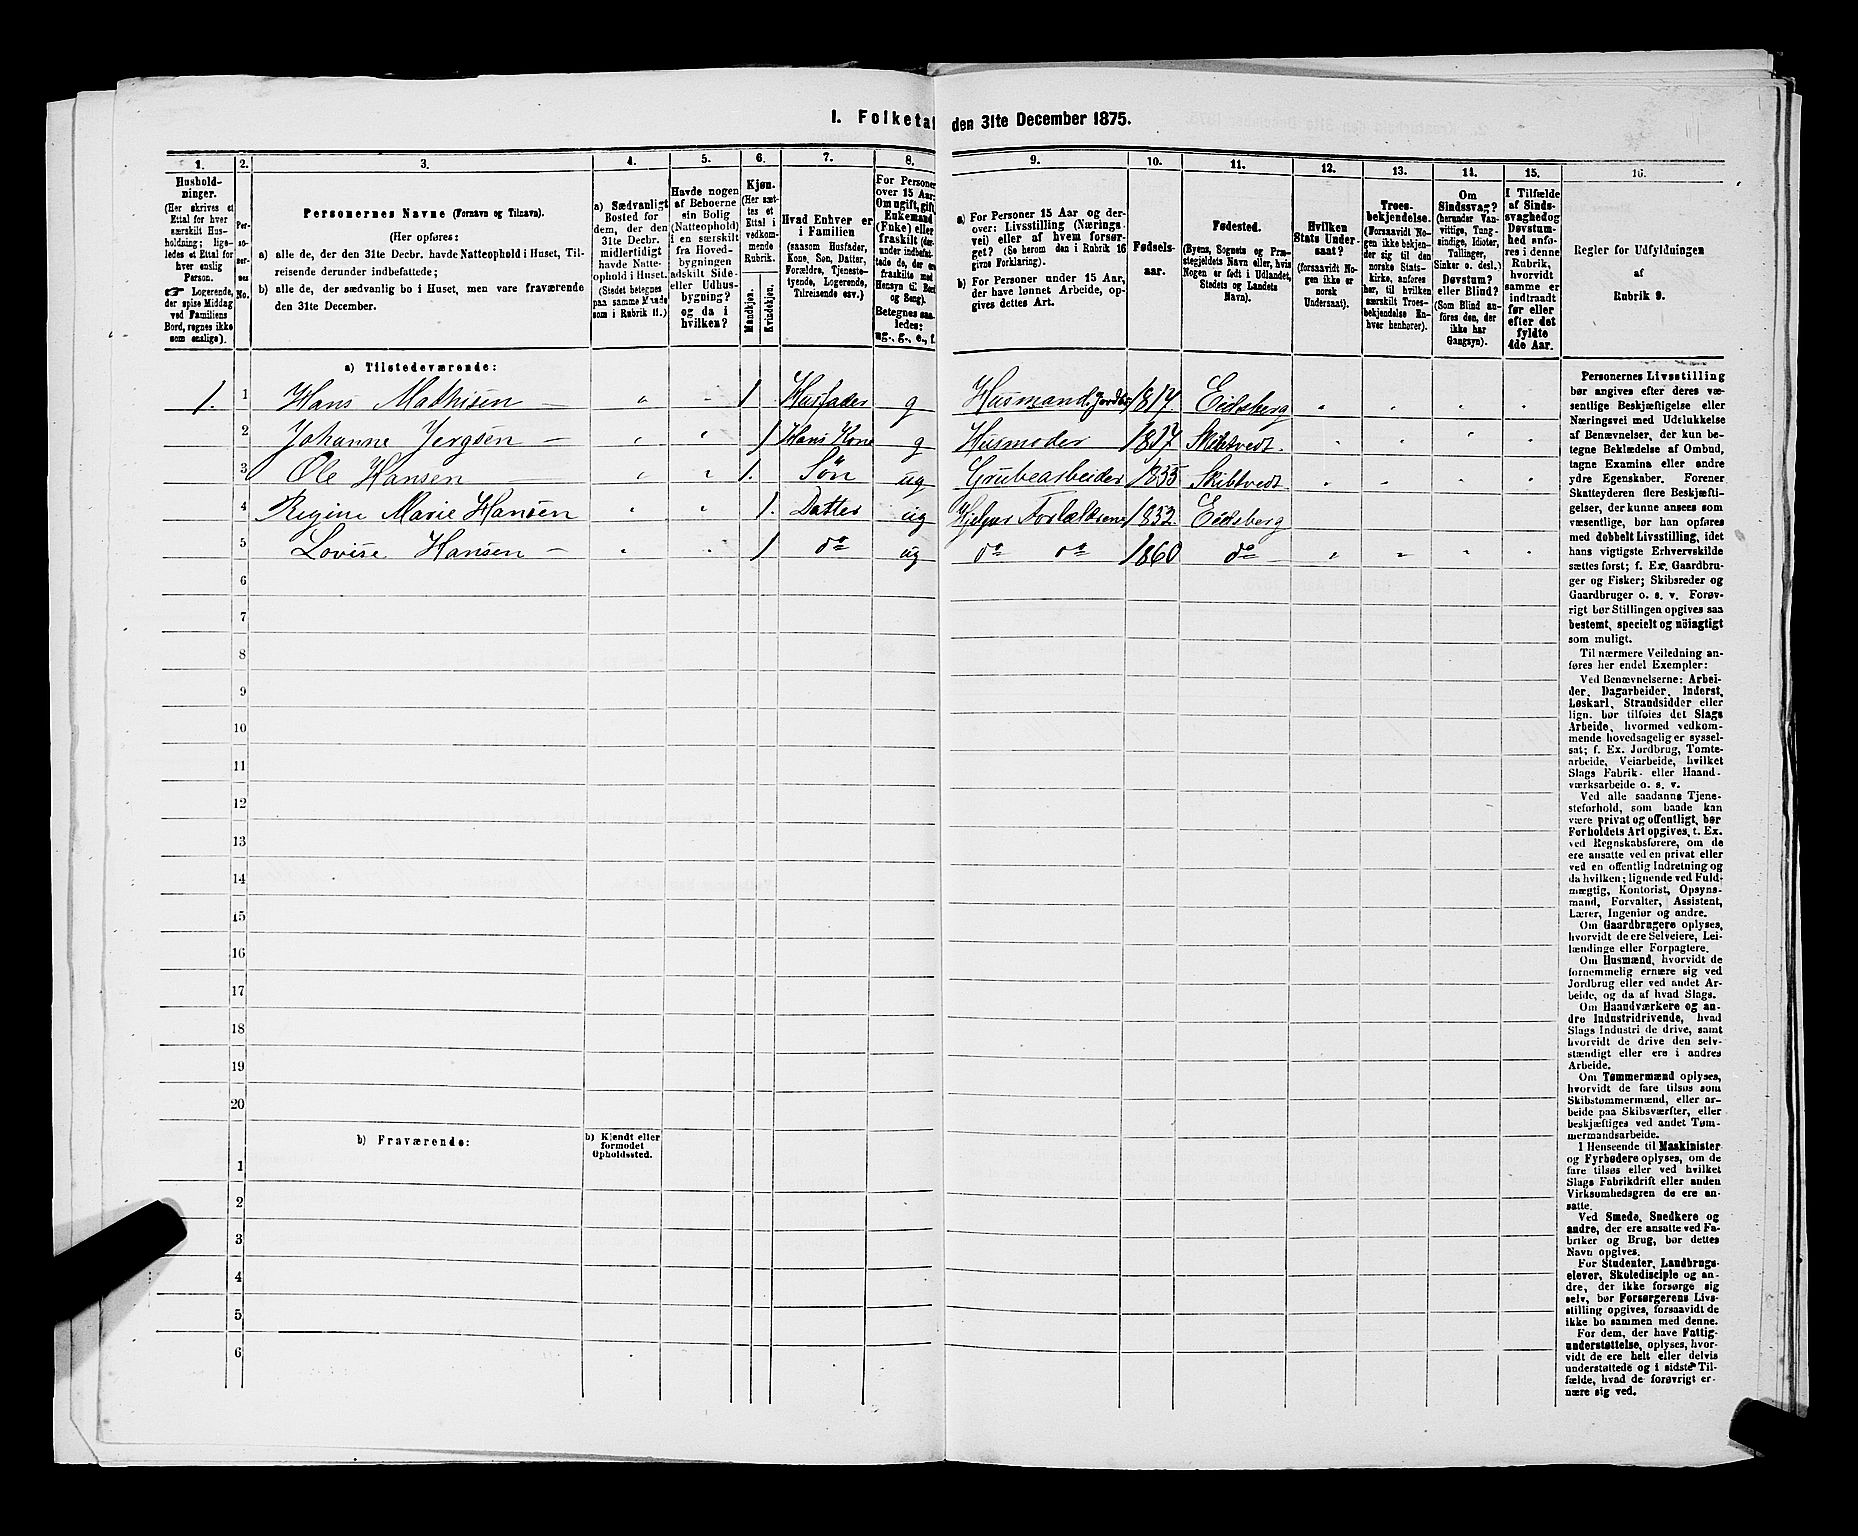 I. Folketal den 31te December 1875.
1. 2. 3. 4. 5. 6. 7. 8. 9. 10. 11. 12. 13. 14. 15. 16.
Hushold-
ninger.
(Her skrives et
Ettal for hver
særskilt Hus-
holdning; lige-
ledes et Ettal for
hver enslig
Person.
☛ Logerende,
der spise Middag
ved Familiens
Bord, regnes ikke
som enslige).
Per-
so-
ner-
nes
No.
Personernes Navne (Fornavn og Tilnavn).
(Her opføres:
a) alle de, der den 31te Decbr. havde Natteophold i Huset, Til-
reisende derunder indbefattede;
b) alle de, der sædvanlig bo i Huset, men vare fraværende
den 31te December.
a) Sædvanligt
Bosted for
dem, der den
31te Decbr.
midlertidigt
havde Natte-
ophold i Huset.
(Stedet betegnes
paa samme Maade
som i Rubrik 11.)
Havde nogen
af Beboerne
sin Bolig
(Natteophold)
i en særskilt
fra Hoved-
bygningen
adskilt Side-
eller Udhus-
bygning?
og da i
hvilken?
Kjøn.
(Her sæt-
tes et
Ettal i
vedkom-
mende
Rubrik.
Mandkjøn.
Kvindekjøn.
Hvad Enhver er
i Familien
(saasom Husfader,
Kone, Søn, Datter,
Forældre, Tjeneste-
tyende, Logerende,
Tilreisende osv.)
For Personer
over 15 Aar:
Om ugift, gift,
Enkemand
(Enke) eller
fraskilt (der-
under indbefat-
tede de, der ere
fraskilte med
Hensyn til Bord
og Seng).
Betegnes saa-
ledes:
ug., g., e., f.
a) For Personer 15 Aar og der-
over: Livsstilling (Nærings-
vei) eller af hvem forsør-
get? (Se herom den i Rubrik 16
givne Forklaring).
b) For Personer under 15 Aar,
der have lønnet Arbeide, op-
gives dettes Art.
Fødsels-
aar.
Fødested.
(Byens, Sognets og Præ-
stegjeldets Navn eller, hvis
Nogen er født i Udlandet,
Stedets og Landets
Navn).
Hvilken
Stats Under-
saat?
(forsaavidt No-
gen ikke er
norsk
Undersaat).
Troes-
bekjendelse.
(Forsaavidt No-
gen ikke bekjen-
der sig til den
norske Stats-
kirke, anføres
her, til hvilken
særskilt Troes-
bekjendelse En-
hver henhører).
Om
Sindssvag?
(herunder Van-
vittige, Tung-
sindige, Idioter,
Tullinger,
Sinker o. desl.)
Døvstum?
eller Blind?
(Som Blind an-
føres den, der
ikke har
Gangsyn).
I Tilfælde
af Sinds-
svaghed og
Døvstum-
hed anfø-
res i denne
Rubrik,
hvorvidt
samme er
indtraadt
før eller
efter det
fyldte
4de Aar.
Regler for Udfyldningen
af
Rubrik 9.
a) Tilstedeværende:
1. 1 Hans Mathisen — " - 1 Husfader g Husmand. Jordbr 1817 Eidsberg " " " "
2 Johanne Jergsen — " " 1 Hans Kone g Husmoder 1817 Skibtvedt. " " " "
3 Ole Hansen — " " 1. Søn ug Grubearbeider 1855 Skibtvedt " " " "
4 Regine Marie Hansen " " 1. Datter ug Hjelper Forældrene 1852. Eidsberg
5 Lovise Hansen — " " 1 do ug do do 1860 do " " " "
6
7
8
9
10
11
12
13
14
15
16
17
18
19
20
b) Fraværende:
b) Kjendt eller
formodet
Opholdssted.
1
2
3
4
5
6
Personernes Livsstilling
bør angives efter deres væ-
sentlige Beskjæftigelse eller
Næringsvei med Udelukkelse
af Benævnelser, der kun be-
tegne Beklædelse af Ombud,
tagne Examina eller andre
ydre Egenskaber. Forener
Skatteyderen flere Beskjæfti-
gelser, der kunne ansees som
væsentlige, bør han opføres
med dobbelt Livsstilling, idet
hans vigtigste Erhvervskilde
sættes først; f. Ex. Gaardbru-
ger og Fisker; Skibsreder og
Gaardbruger o. s. v. Forøv-
rigt bør Stillingen opgives saa
bestemt, specielt og nöiagtigt
som muligt.
Til nærmere Veiledning an-
føres her endel Exempler:
Ved Benævnelserne: Arbei-
der, Dagarbeider, Inderst,
Løskarl, Strandsidder eller
lign. bør tilføies det Slags
Arbeide, hvormed vedkom-
mende hovedsagelig er syssel-
sat; f. Ex. Jordbrug, Tomte-
arbeide, Veiarbeide, hvilket
Slags Fabrik- eller Haand-
værksarbeide o. s. v.
Ved alle saadanne Tjene-
steforhold, som baade kan
være privat og offentligt, bør
Forholdets Art opgives, t. Ex.
ved Regnskabsførere, om de
ere ansatte ved en privat eller
ved en offentlig Indretning og
da hvilken; lignende ved Fuld-
mægtig, Kontorist, Opsyns-
mand, Forvalter, Assistent,
Lærer, Ingeniør og andre.
Om Gaardbrugere oplyses,
hvorvidt de ere Selveiere, Lei-
lændinge eller Forpagtere.
Om Husmænd, hvorvidt de
fornemmelig ernære sig ved
Jordbrug eller ved andet Ar-
beide, og da af hvad Slags.
Om Haandværkere og an-
dre Industridrivende, hvad
Slags Industri de drive, samt
hvorvidt de drive den selv-
stændigt eller ere i andres
Arbeide.
Om Tømmermænd oplyses,
hvorvidt de fare tilsøs som
Skibstømmermænd, eller ar-
beide paa Skibsværfter, eller
beskjæftiges ved andet Tøm-
mermandsarbeide.
I Henseende til Maskinister
og Fyrbødere oplyses, om de
fare tilsøs eller ved hvilket
Slags Fabrikdrift eller anden
Virksomhedsgren de ere an-
satte.
Ved Smede, Snedkere og
andre, der ere ansatte ved Fa-
briker og Brug, bør dettes
Navn opgives.
For Studenter, Landbrugs-
elever, Skoledisciple og an-
dre, der ikke forsørge sig
selv, bør Forsørgerens Livs-
stilling opgives, forsaavidt de
ikke bo sammen med denne.
For dem, der have Fattig-
understøttelse, oplyses, hvor-
vidt de ere helt eller delvis
understøttede og i sidste Til-
fælde, hvad de forøvrigt er-
nære sig ved.